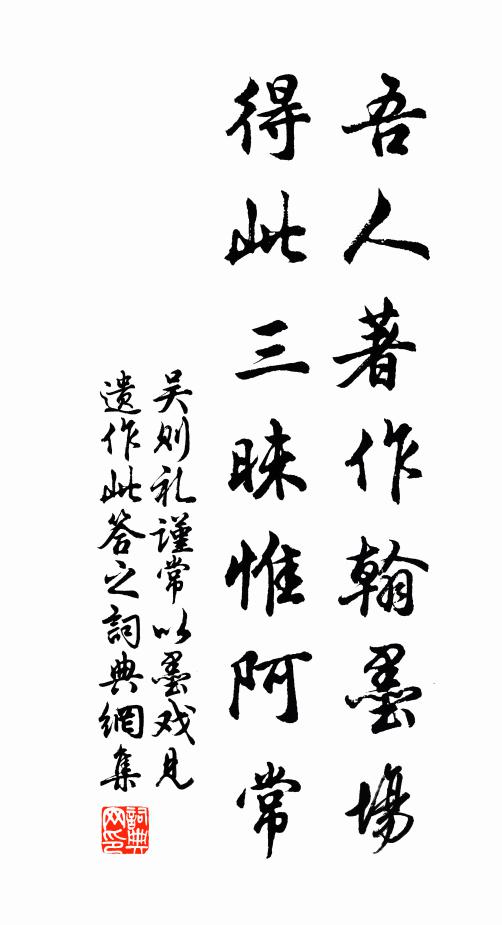 吾人著作翰墨場
得此三昧惟阿常
吴则礼謹常以墨戏見
遗作此答之詞典網集
詞典
网印